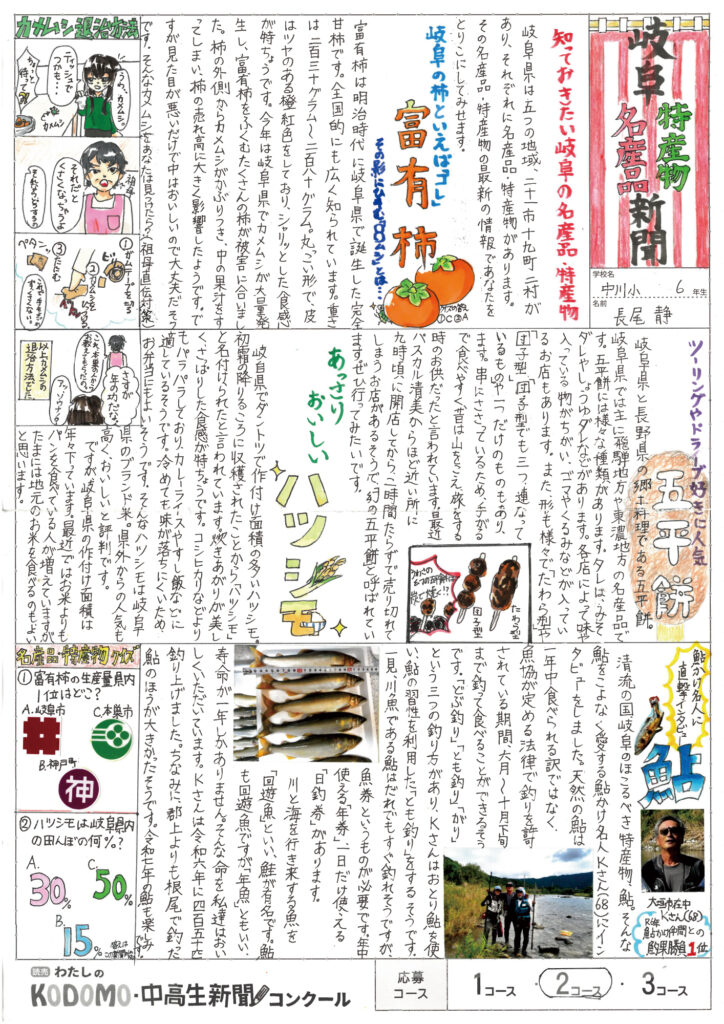 岐阜
特産物
名産品
新聞
学校名
中川小
6年生
名前
長尾 静
知っておきたい岐阜の名産品・特産物
岐阜県は五つの地域、二十一市十九町二村が
あり、それぞれに名産品・特産物があります。
その名産品・特産物の最新の情報であなたを
とりこにしてみせます。
岐阜の柿といえばコレ
富有柿
富有柿は明治時代に岐阜県で誕生した完全
甘柿です。全国的にも広く知られています。重さ
は二百三十グラム〜二百八十グラム。丸っこい形で、皮
はツヤのある橙紅色をしており、シャリっとした食感
が特ちょうです。今年は岐阜県でカメムシが大量発
生し、富有柿をふくむたくさんの柿が被害に合いまし
た。柿の外側からカメムシがかぶりつき、中の果汁をす
ってしまい、柿の売れ高に大きく影響したようです。で
すが見た目が悪いだけで中はおいしいので大丈夫だそう
です。そんなカメムシをあなたは見つけたら?(祖母直伝対策)
カメムシ退治方法
うわ、カメムシ。
ティッシュで
つかも…
ちょっと
待って
祖母
それだと
くさくなっちゃうよ
①ガムテープを切る
ビー
②カメムシを
ペタッ
③たたむ
ペタン。
さすが
年の功だな。
以上カメムシの
退治方法でした
ツーリングやドライブ好きに人気
五平餅
岐阜県と長野県の郷土料理である五平餅。
岐阜県では主に飛騨地方や東濃地方の名産品で
す。五平餅には様々な種類があります。タレは、みそ
ダレやしょうゆダレなどがあります。各店によって味や
入っている物がちがい、ゴマやくるみなどが入ってい
るお店もあります。また、形も様々で「たわら型」や
「団子型」、団子型でも三つ連なって
いるものや一つだけのものもあり、
ます。串にささっているため、手がる
で食べやすく昔は山をこえ旅をする
時のお供だったと言われています。最近
バスカ清美からほど近い所に
九時頃に開店してから、二時間たらずで売り切れて
しまうお店があるそうで、幻の五平餅と呼ばれてい
ます。ぜひ行ってみたいです。
たわら型
団子型
あっさり
おいしい
ハツシモ
岐阜県でダントツで作付け面積の多いハツシモ。
初霜の降りるころに収穫されたことから「ハツシモ」
と名付けられたと言われています。炊きあがりが美し
く、さっぱりした食感が特ちょうです。コシヒカリなどより
もパラパラしており、カレーライスやすし飯などに
適しているそうです。冷めても味が落ちにくいため、
お弁当にもよいそうです。そんなハツシモは岐阜
県のブランド米。県外からの人気も
高く、おいしいと評判です。
ですが岐阜県の作付け面積は
年々下っています。最近ではお米よりも
パンを食べている人が増えていますが、
たまには地元のお米を食べるのもよい
と思います。
鮎かけ名人に
直撃インタビュー
鮎
清流の国岐阜のほこるべき特産物、鮎。そんな
鮎をこよなく愛する鮎かけ名人Kさん(68)にイン
タビューをしました。天然の鮎は
一年中食べられる訳ではなく、
魚協が定める法律で釣りを許可
されている期間、六月〜十月下旬
まで釣って食べることができるそう
です。「どぶ釣り」「とも釣り」「がり」
という三つの釣り方があり、Kさんはおとり鮎を使
い、鮎の習性を利用した「とも釣り」をするそうです。一
見、川魚である鮎はだれでもすぐ釣れそうですが、
魚券というものが必要です。年中
使える「年券」、一日だけ使える
「日釣券」があります。
川と海を行き来する魚を
「回遊魚」といい、鮭が有名です。鮎
も回遊魚ですが「年魚」ともいい、
寿命が一年しかありません。そんな命を私達はおい
しくいただいています。Kさんは令和六年に四百五十匹
釣り上げました。ちなみに、郡上よりも根尾で釣った
鮎のほうが大きかったようです。令和七年の鮎も楽しみです。
大垣市在中
Kさん(68)
R6年
鮎かけ仲間との
釣果勝負1位
名産品・特産物クイズ
①富有柿の生産量県内
1位はどこ?
A.岐阜市
C.本巣市
B.神戸町
神
②ハツシモは岐阜県内
の田んぼの何%?
A.
30%
C.
50%
B.
15%
読売 わたしの
KODOMO・中高生新聞コンクール
応募
コース
1コース ・ 2コース ・ 3コース